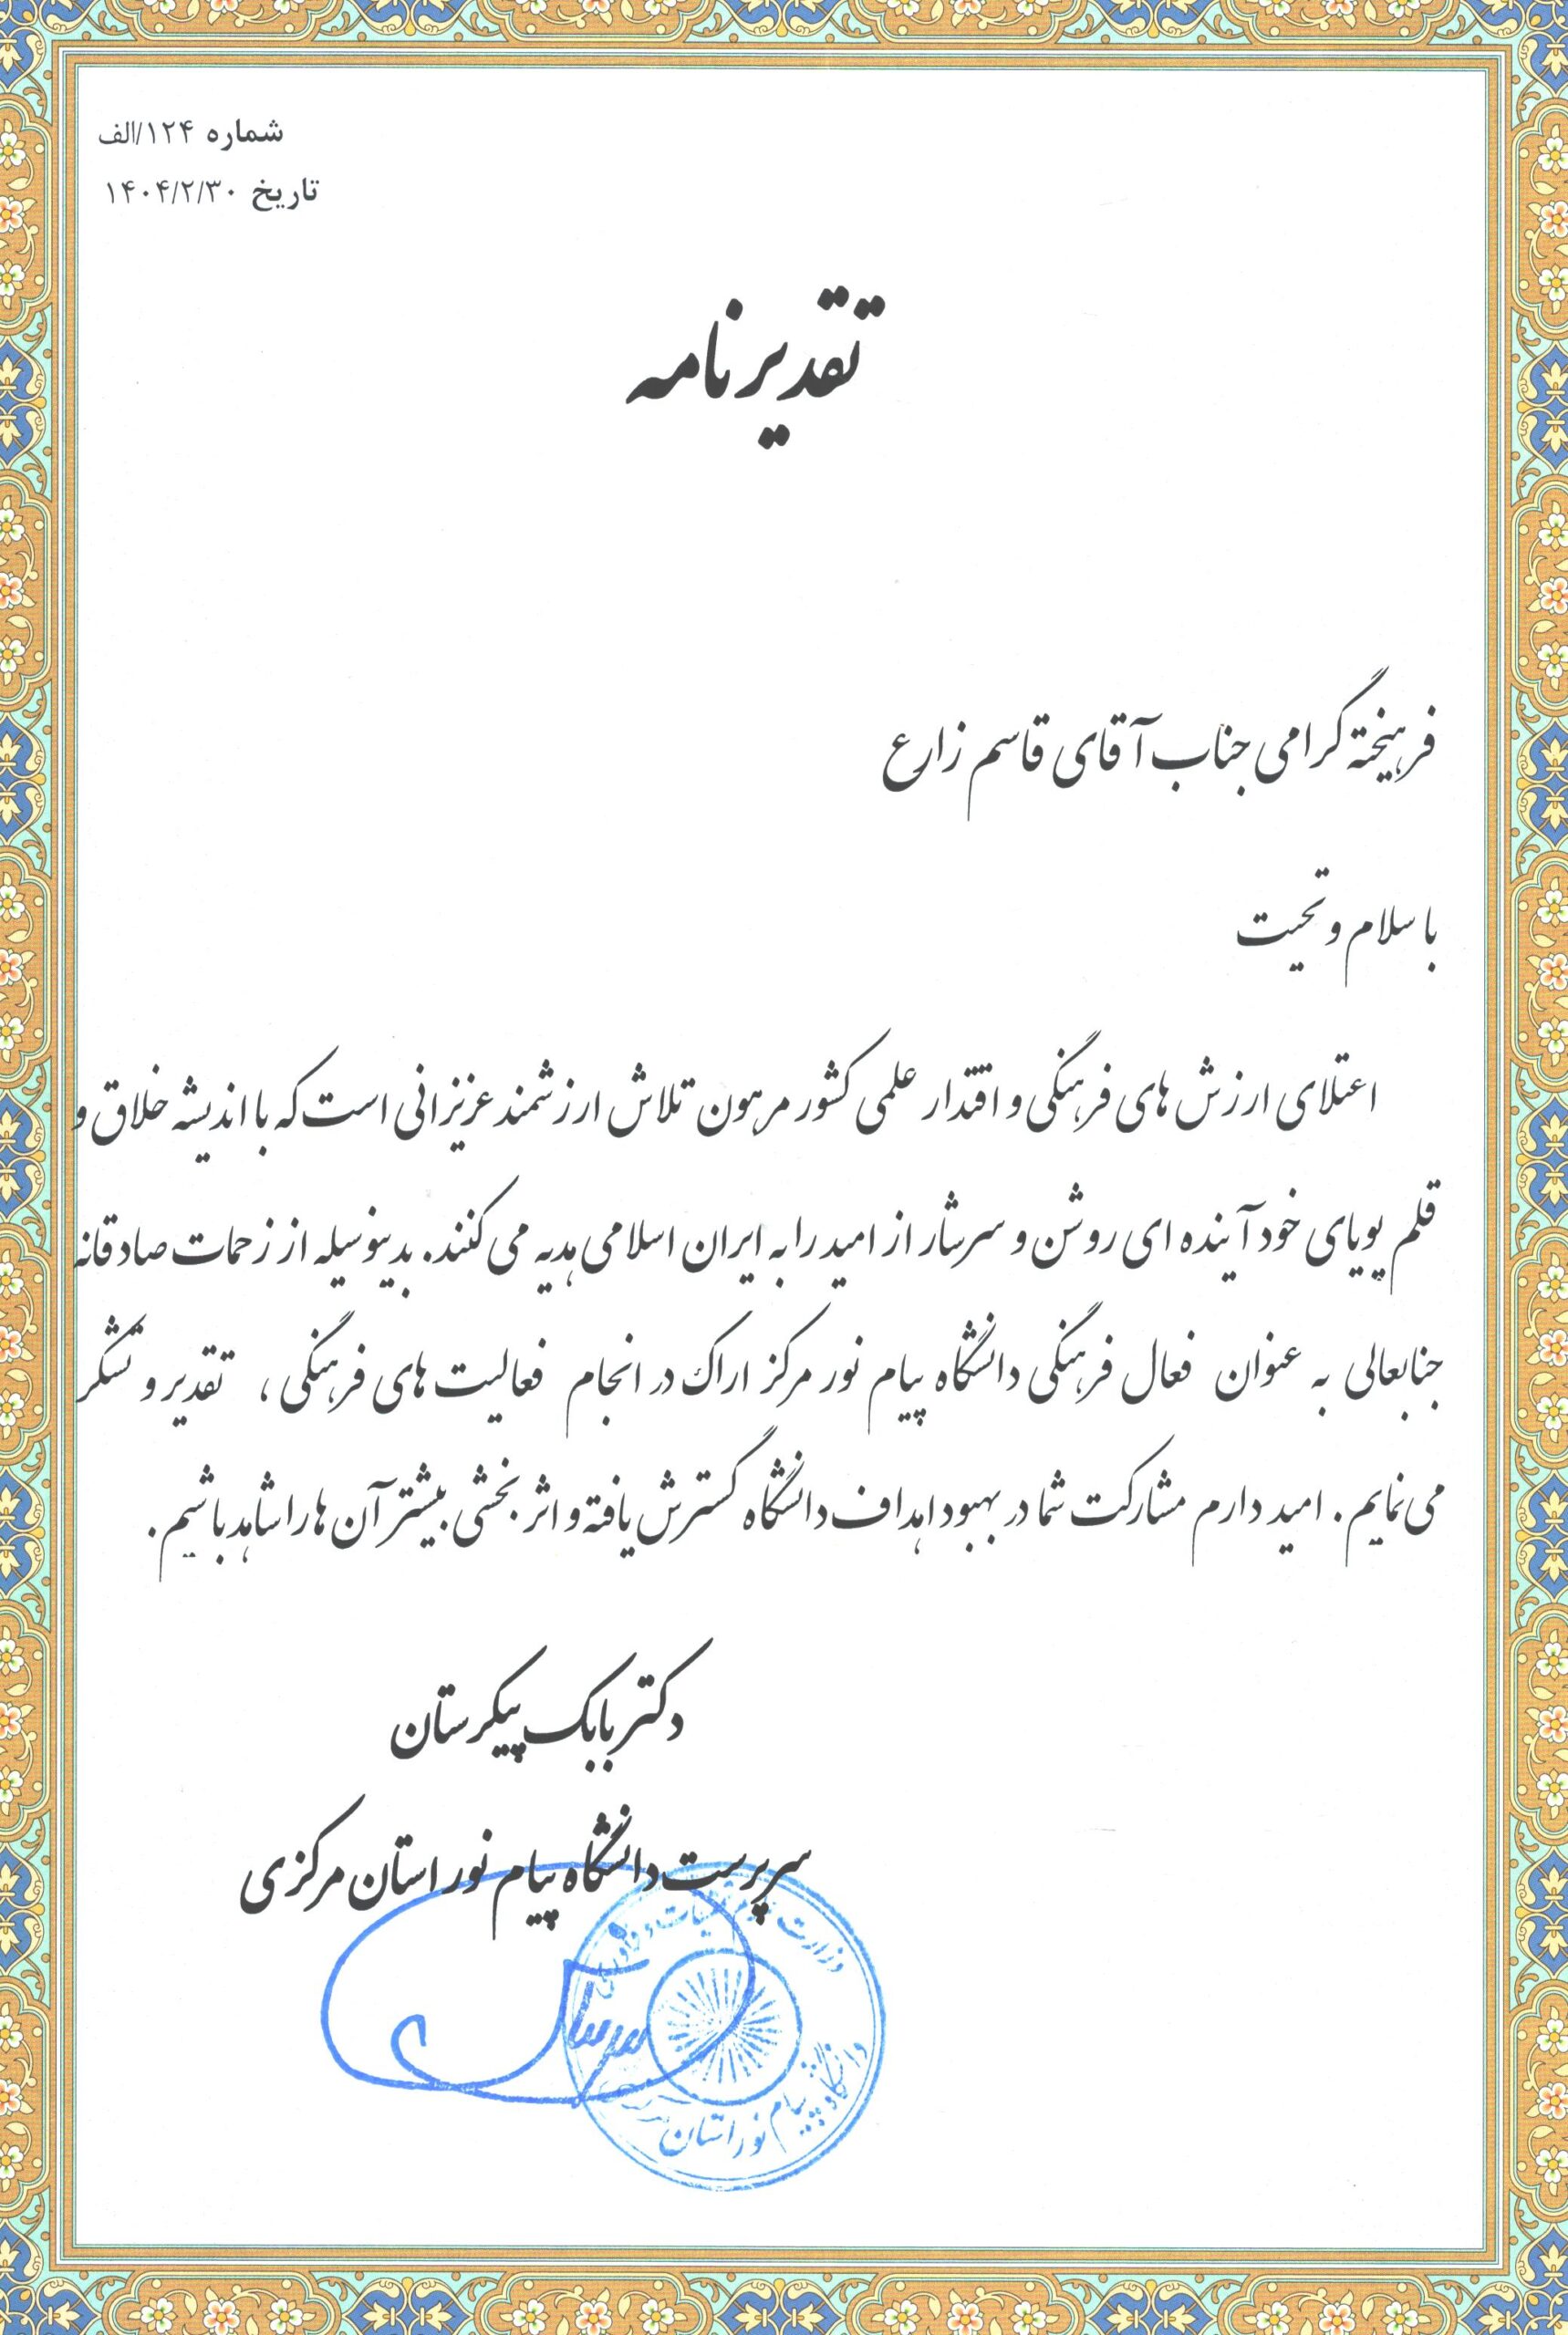 شماره ۱۲۴/الف
تاریخ ۱۴۰۴/۲/۳۰
تقدیرنامه
فرهیخته گرامی جناب آقای قاسم زارع
با سلام و تحیت
اعتلای ارزش های فرهنگی و اقتدار علمی کشور مرهون تلاش ارزشمند عزیزانی است که با اندیشه خلاق و
قلم پویای خود آینده ای روشن و سرشار از امید را به ایران اسلامی هدیه می کنند. بدینوسیله از زحمات صادقانه
جنابعالی به عنوان فعال فرهنگی دانشگاه پیام نور مرکز اراک در انجام فعالیت های فرهنگی ، تقدیر و تشکر
می نمایم. امید دارم مشارکت شما در بهبود اهداف دانشگاه گسترش یافته و اثر بخشی بیشتر آن ها را شاهد باشیم.
دکتر بابک پیکرستان
سرپرست دانشگاه پیام نور استان مرکزی
وزارت علوم تحقیقات و فناوری
دانشگاه پیام نور استان مرکزی